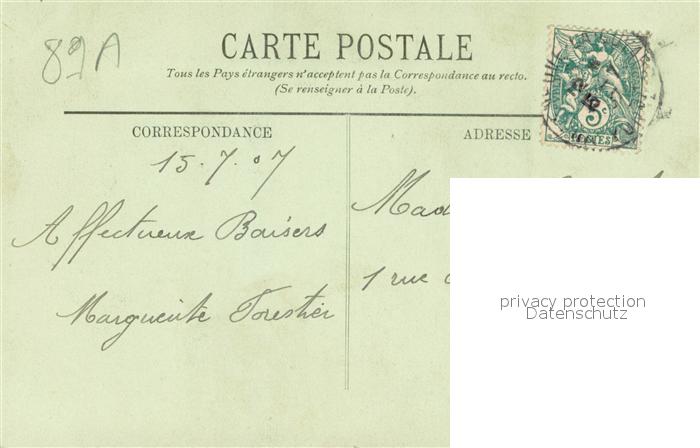 89A
CARTE POSTALE
Tous les Pays étrangers n'acceptent pas la Correspondance au recto.
(Se renseigner à la Poste).
CORRESPONDANCE
ADRESSE
15.7.07
Affectueux Baisers
Marguerite Forestier
Mad
1 rue
5c
POSTES
privacy protection
Datenschutz